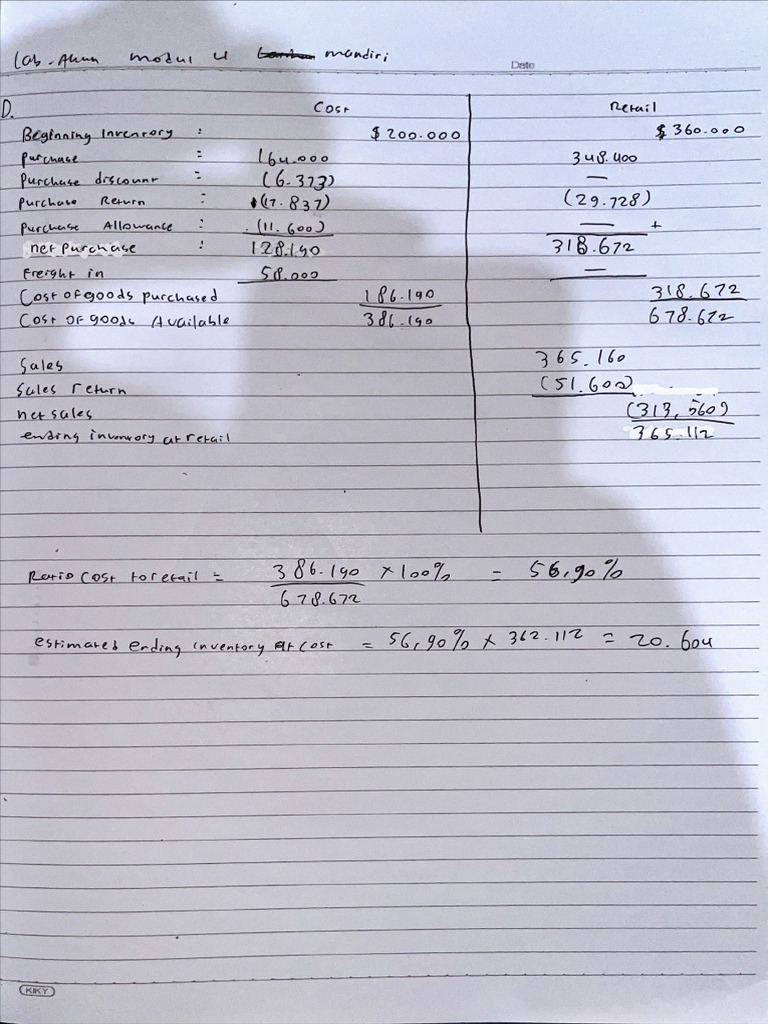 Lab. Akun modul 4 mandiri
Date
D. Cost Retail
Beginning Inventory : $ 200.000 $ 360.000
Purchase : 164.000 348.400
Purchase discount : (6.373) —
Purchase Return : (17.837) (29.728)
Purchase Allowance : (11.600) — +
net purchase : 128.190 318.672
Freight in 58.000 —
Cost of goods purchased 186.190 318.672
Cost of goods Available 386.190 678.672
Sales 365.160
Sales return (51.600)
net sales (313,560)
ending inventory at retail 365.112
Ratio Cost to retail = 386.190 / 678.672 × 100% = 56,90%
estimated ending inventory at cost = 56,90% × 362.112 = 20.604
KIKY